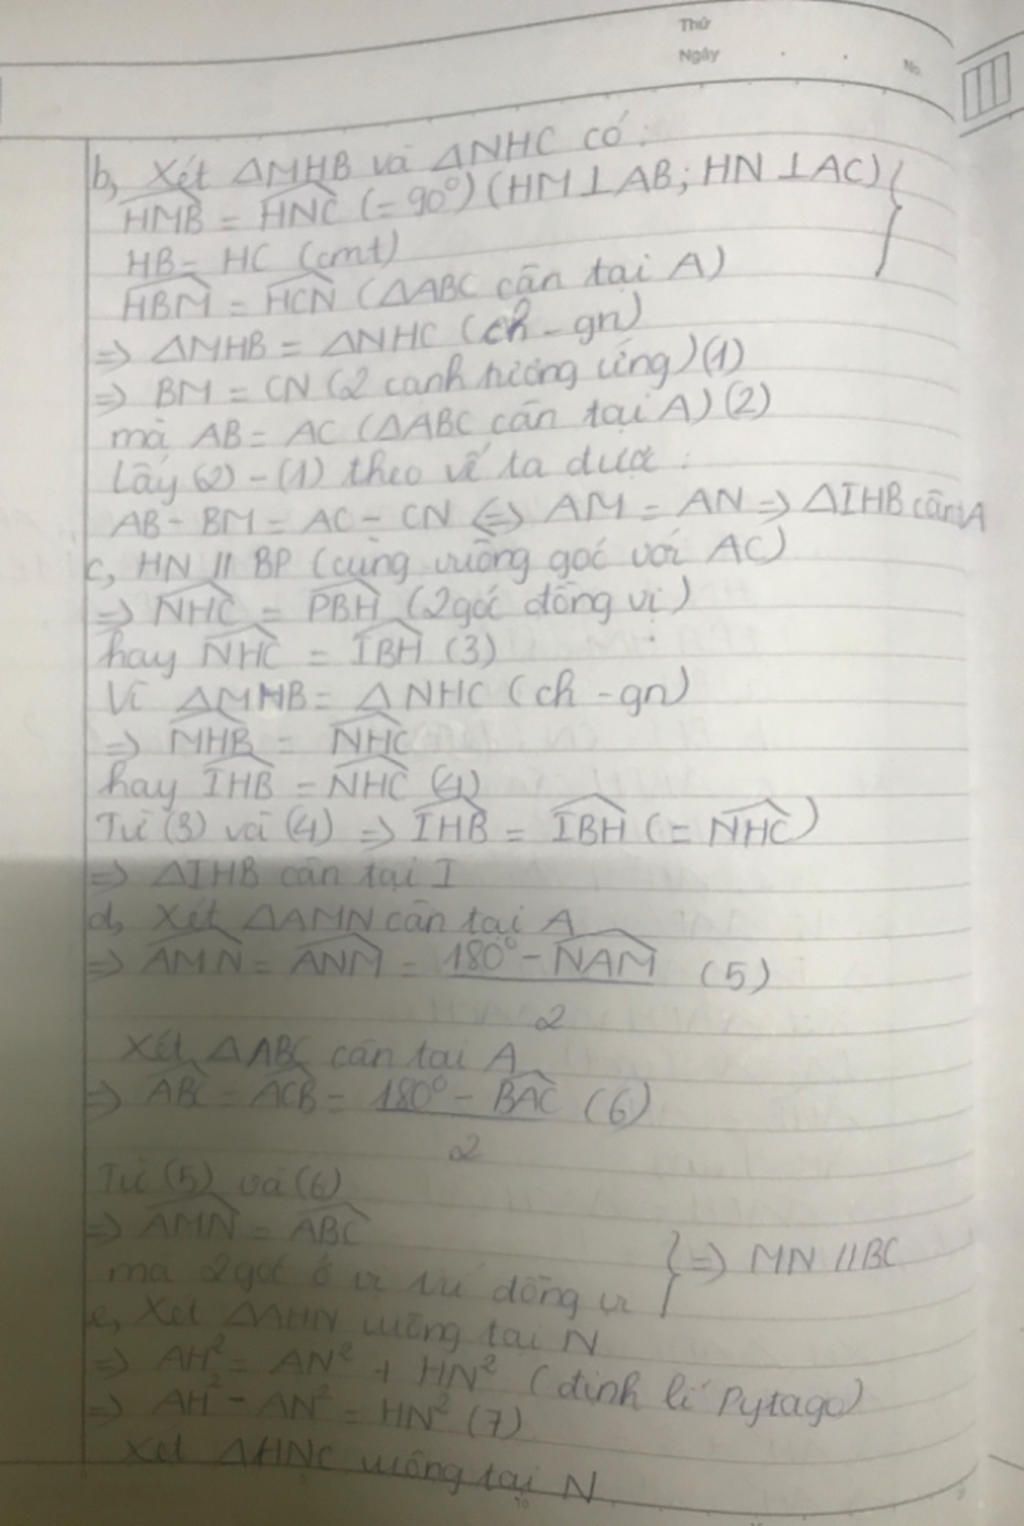 Thứ
Ngày
No.
b, Xét ΔMHB và ΔNHC có:
HMB = HNC (= 90°) (HM ⊥ AB; HN ⊥ AC)
HB = HC (cmt)
HBM = HCN (ΔABC cân tại A)
=> ΔMHB = ΔNHC (ch - gn)
=> BM = CN (2 cạnh tương ứng) (1)
mà AB = AC (ΔABC cân tại A) (2)
Lấy (2) - (1) theo vế ta được:
AB - BM = AC - CN <=> AM = AN => ΔIHB cân A
c, HN // BP (cùng vuông góc với AC)
=> NHC = PBH (2 góc đồng vị)
hay NHC = IBH (3)
Vì ΔMHB = ΔNHC (ch - gn)
=> MHB = NHC
hay IHB = NHC (4)
Từ (3) và (4) => IHB = IBH (= NHC)
=> ΔIHB cân tại I
d, Xét ΔAMN cân tại A
=> AMN = ANM = 180° - NAM (5)
2
Xét ΔABC cân tại A
=> ABC = ACB = 180° - BAC (6)
2
Từ (5) và (6)
=> AMN = ABC
} => MN // BC
mà 2 góc ở vị trí đồng vị
e, Xét ΔAHN vuông tại N
=> AH² = AN² + HN² (định lí Pytago)
=> AH² - AN² = HN² (7)
Xét ΔHNC vuông tại N